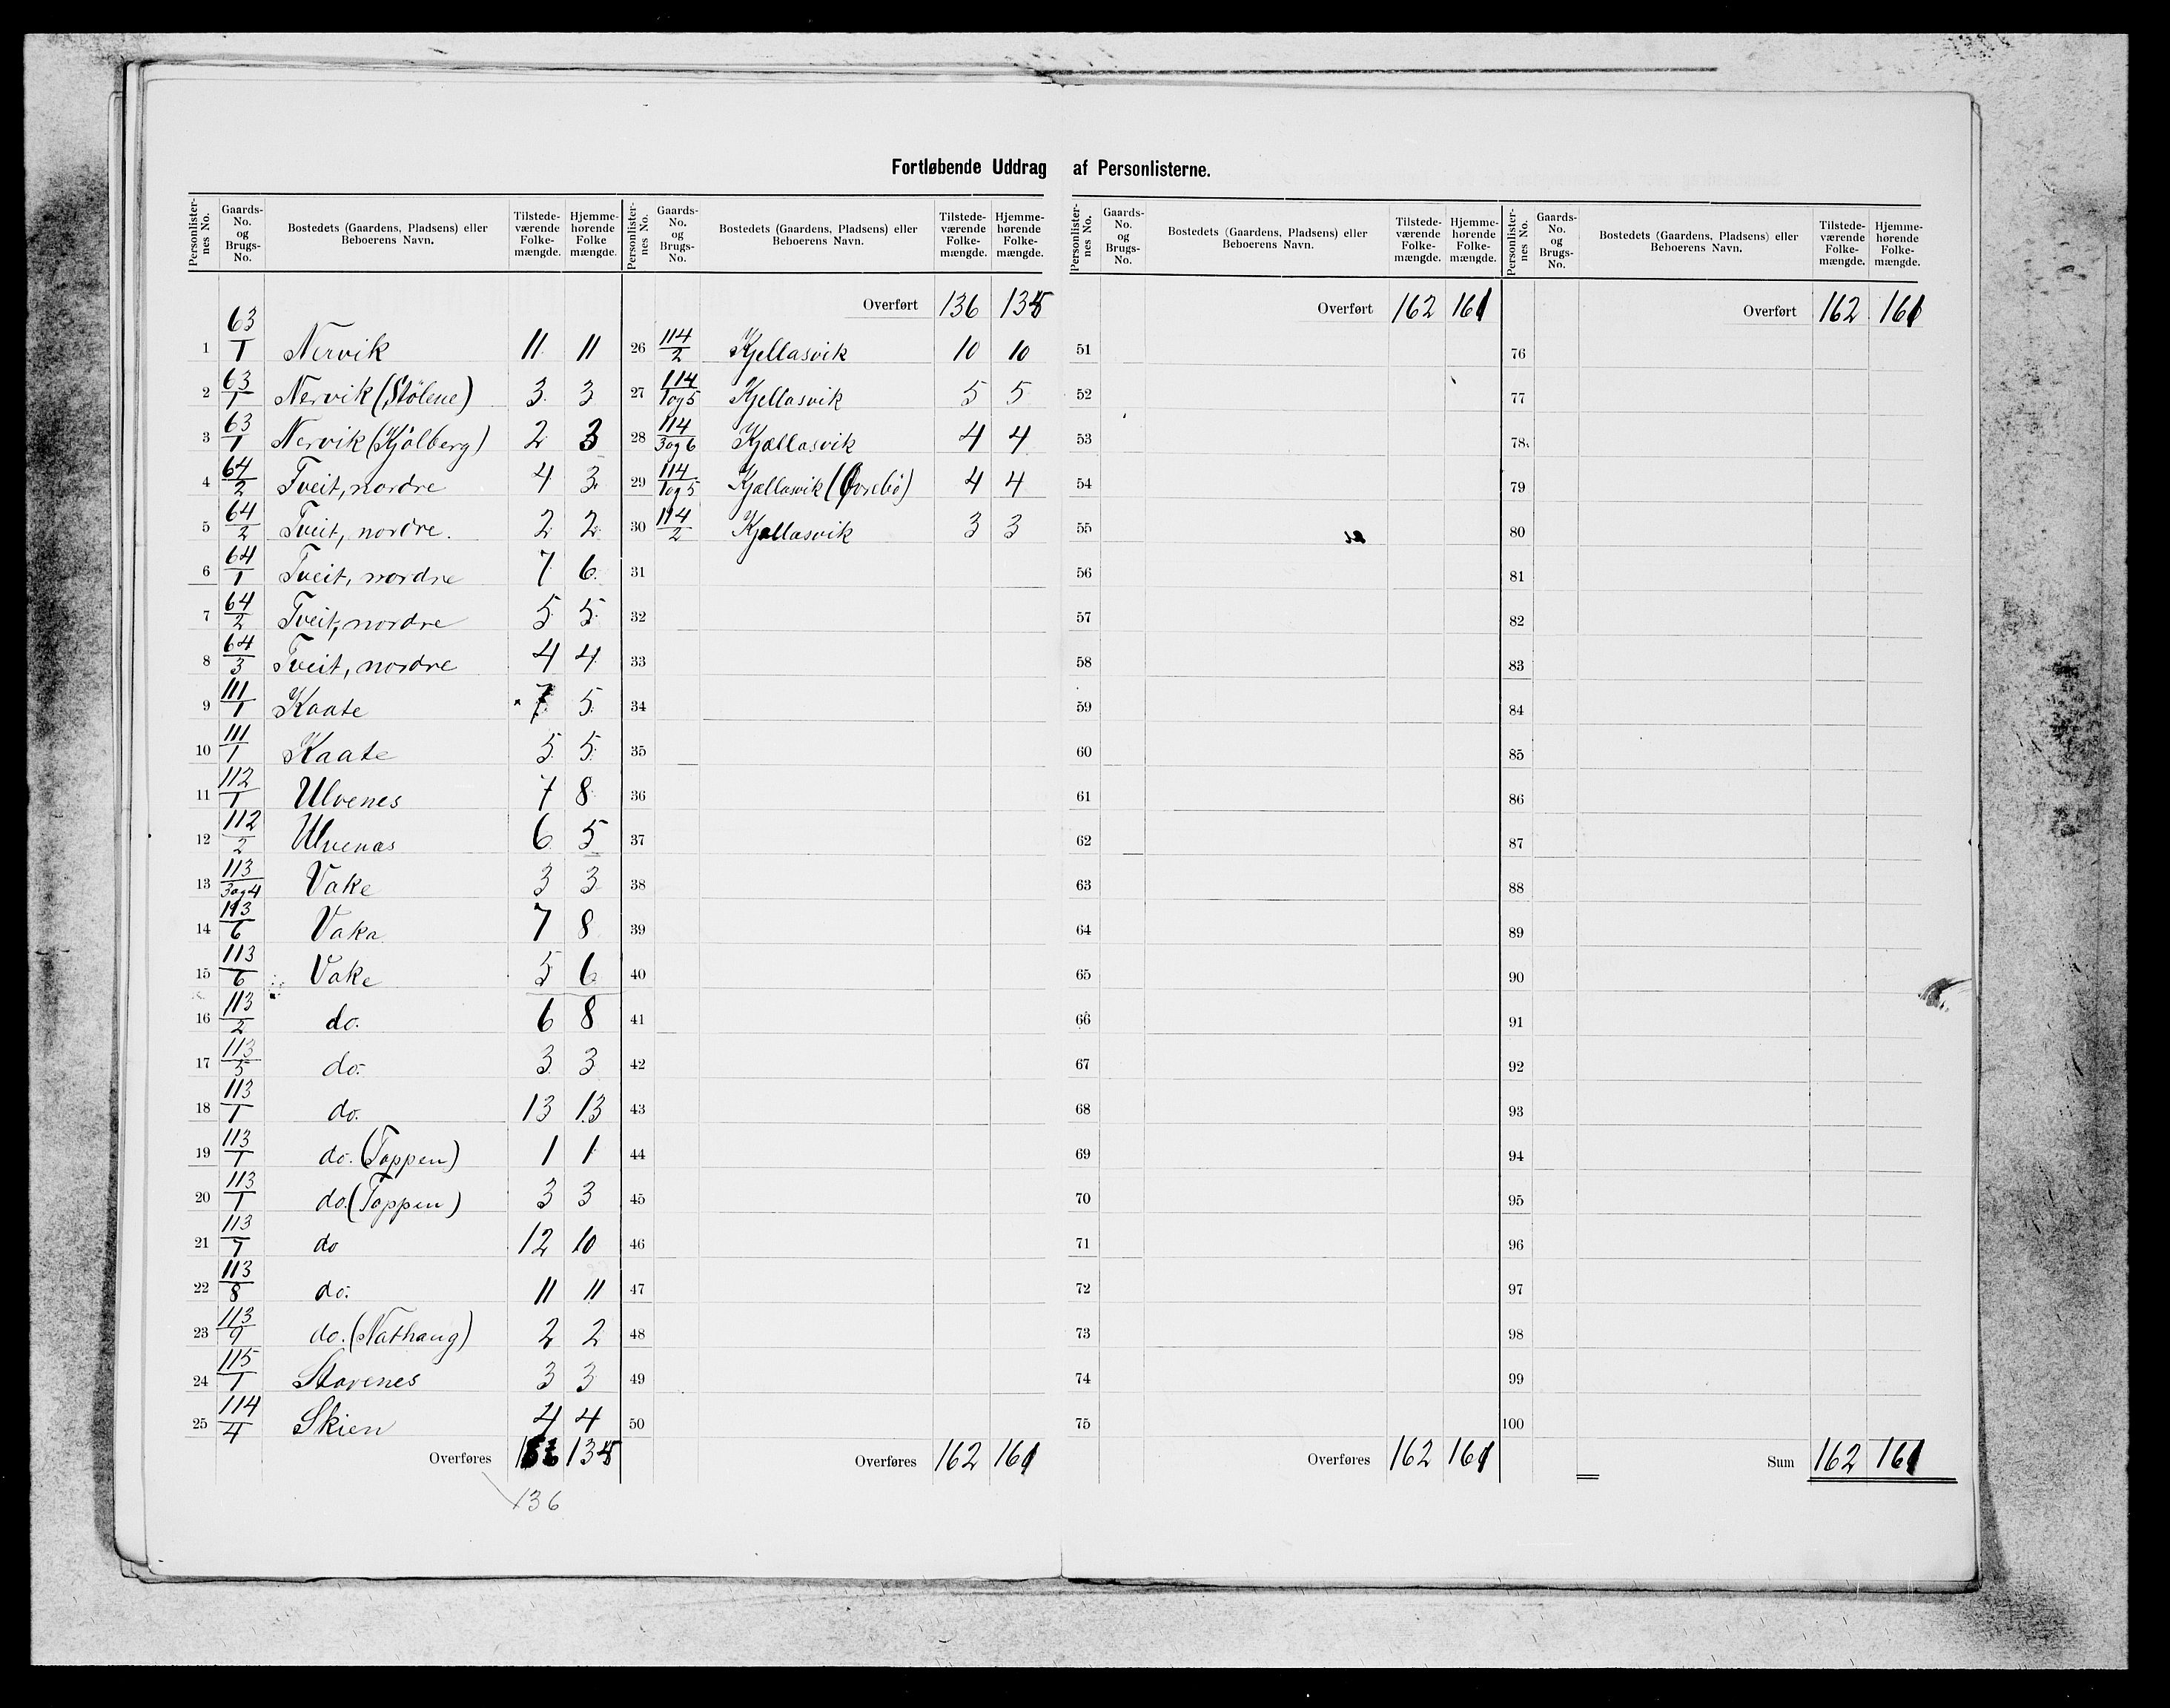 Fortløbende Uddrag af Personlisterne.
Personlister-nes No. Gaards-No. og Brugs-No. Bostedets (Gaardens, Pladsens) eller Beboerens Navn. Tilstede-værende Folke-mængde. Hjemme-hørende Folke mængde.
1 63/1 Nervik 11 11
2 63/1 Nervik (Stölene) 3 3
3 63/1 Nervik (Kjölberg) 2 3
4 64/2 Tveit, nordre 4 3
5 64/2 Tveit, nordre. 2 2
6 64/1 Tveit, nordre 7 6
7 64/2 Tveit, nordre 5 5
8 64/3 Tveit, nordre 4 4
9 111/1 Kaate 7 5
10 111/1 Kaate 5 5
11 112/1 Ulvenes 7 8
12 112/2 Ulvenæs 6 5
13 113/3og4 Vake 3 3
14 113/6 Vaka 7 8
15 113/6 Vake 5 6
16 113/2 do. 6 8
17 113/5 do. 3 3
18 113/1 do. 13 13
19 113/1 do. (Toppen) 1 1
20 113/1 do. (Toppen) 3 3
21 113/7 do 12 10
22 113/8 do. 11 11
23 113/9 do. (Nathaug) 2 2
24 115/1 Stavenes 3 3
25 114/4 Skien 4 4
Overføres 135
136
Personlister-nes No. Gaards-No. og Brugs-No. Bostedets (Gaardens, Pladsens) eller Beboerens Navn. Tilstede-værende Folke-mængde. Hjemme-hørende Folke-mængde.
Overført 136 135
26 114/2 Kjellasvik 10 10
27 114/1og5 Kjellasvik 5 5
28 114/3og6 Kjællasvik 4 4
29 114/1og5 Kjællasvik (Øvrebø) 4 4
30 114/2 Kjællasvik 3 3
31
32
33
34
35
36
37
38
39
40
41
42
43
44
45
46
47
48
49
50
Overføres 162 161
Personlister-nes No. Gaards-No. og Brugs-No. Bostedets (Gaardens, Pladsens) eller Beboerens Navn. Tilstede-værende Folke-mængde. Hjemme-hørende Folke-mængde.
Overført 162 161
51
52
53
54
55
56
57
58
59
60
61
62
63
64
65
66
67
68
69
70
71
72
73
74
75
Overføres 162 161
Personlister-nes No. Gaards-No. og Brugs-No. Bostedets (Gaardens, Pladsens) eller Beboerens Navn. Tilstede-værende Folke-mængde. Hjemme-hørende Folke-mængde.
Overført 162 161
76
77
78
79
80
81
82
83
84
85
86
87
88
89
90
91
92
93
94
95
96
97
98
99
100
Sum 162 161